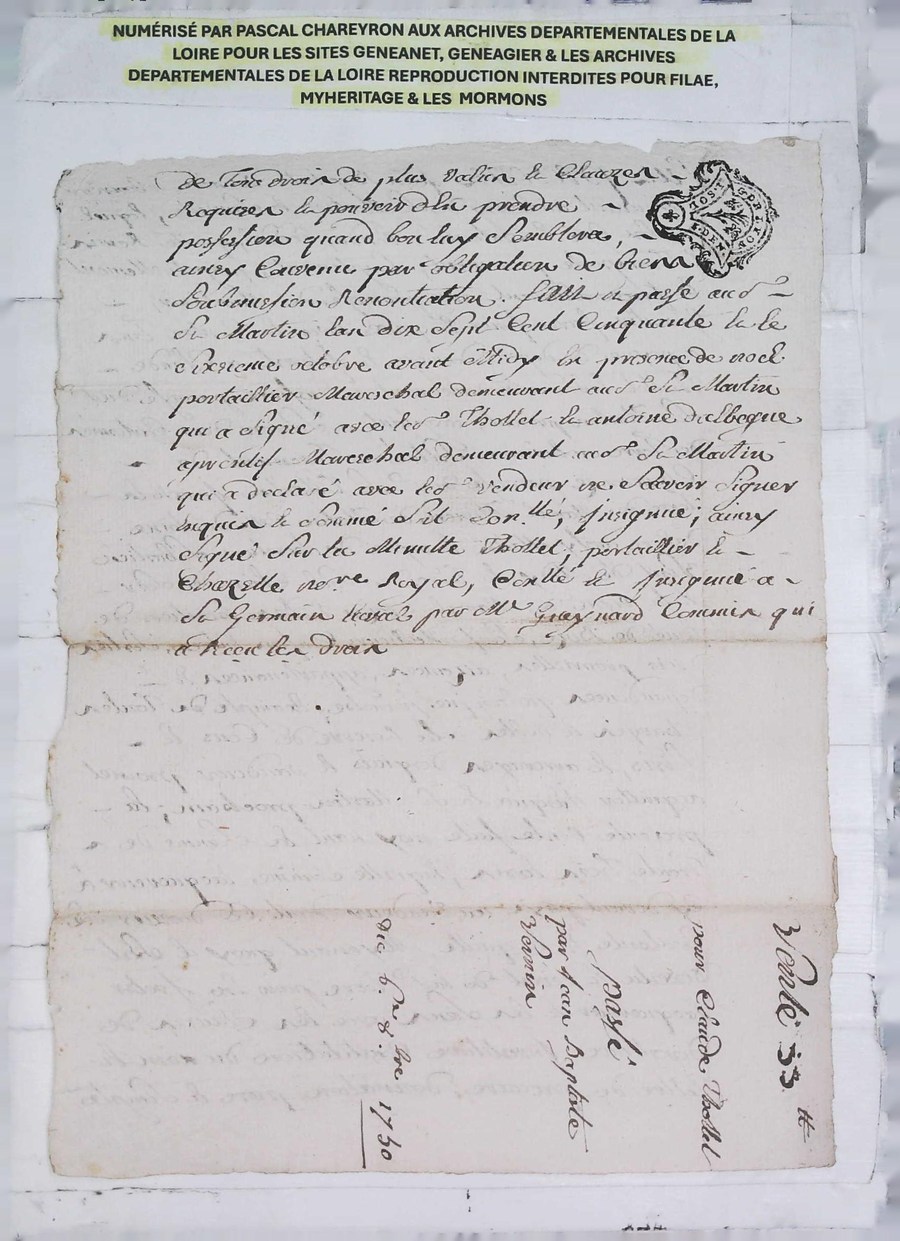 NUMÉRISÉ PAR PASCAL CHAREYRON AUX ARCHIVES DEPARTEMENTALES DE LA
LOIRE POUR LES SITES GENEANET, GENEAGIER & LES ARCHIVES
DEPARTEMENTALES DE LA LOIRE REPRODUCTION INTERDITES POUR FILAE,
MYHERITAGE & LES MORMONS
De Tous droits de plus valüe & Clauzes
Requizes le pouvoir d'En prendre
possession quand bon luy Semblera,
ainsy Convenu par obligation de biens
Soubmission Renontiation. fait et passé aud.
St Martin lan dix Sept Cent Cinquante & le
Sixzieme octobre avant Midy En presence de noel
portaillier Mareschal demeurant aud. St Martin
qui a Signé avec led. Thollet & antoine dalbegue
aprentif Mareschal demeurant aud. St Martin
qui a declaré avec led. vendeur ne Scavoir Signer
Enquis & Sommé Soit Con.llé, jnsignué; ainsy
Signé Sur la Minutte Thollet, portaillier &
Chazelle no.re Royal, Conllé & jnsignué a
St Germain Laval par Mr Gueynard Commis qui
a Reçeu les droits
Vente 33 tt
pour Claude Thollet
Passé
par Jean Baptiste
Vernin
du 6.e 8.bre 1750